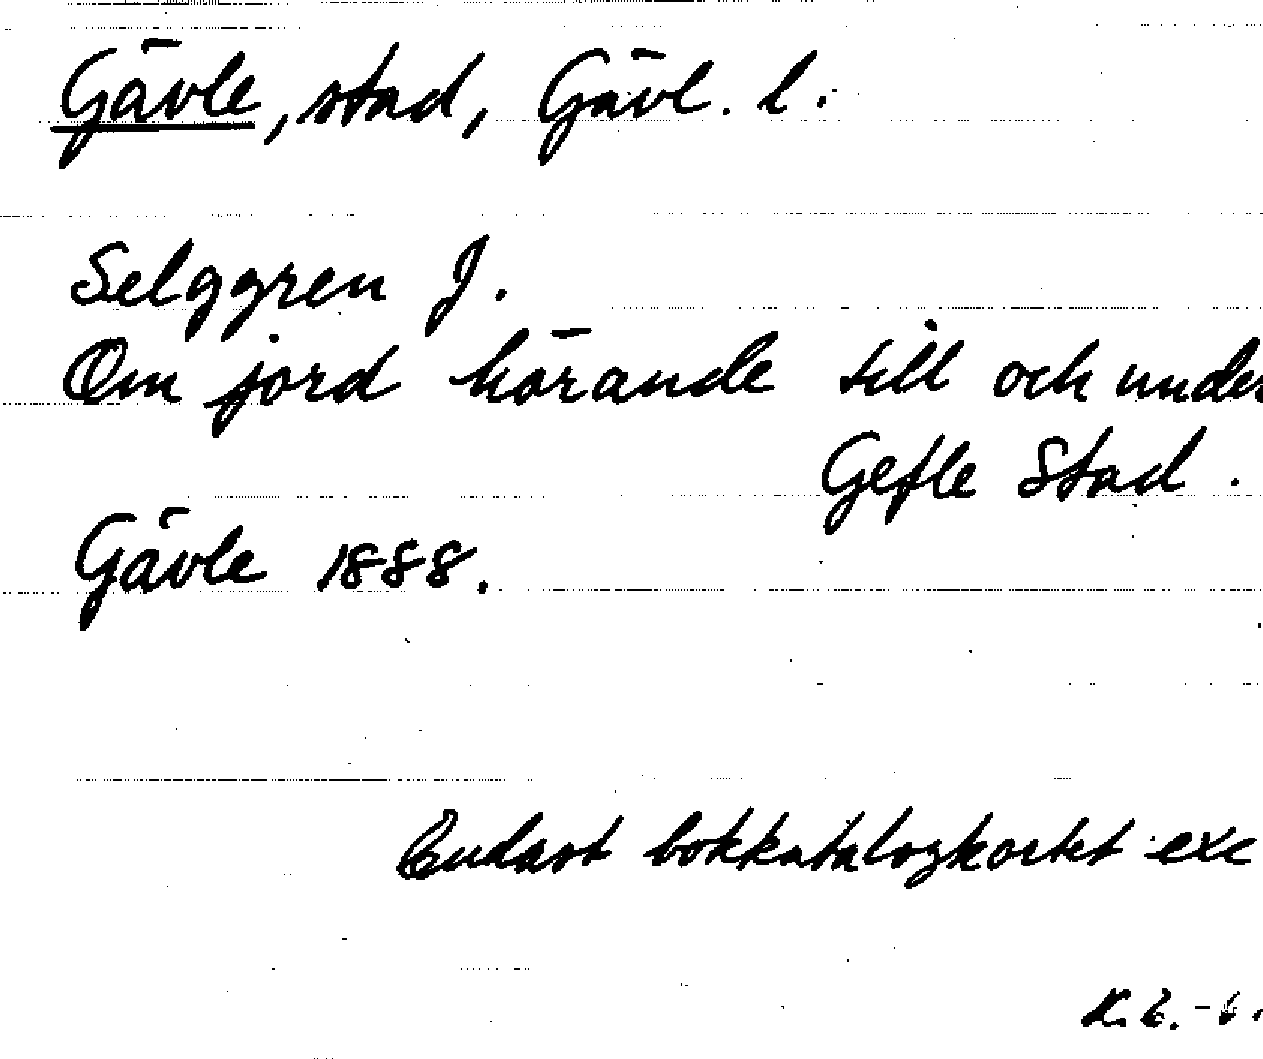 Gävle, stad, Gävl. l.
Selggren J.
Om jord hörande till och under
Gefle Stad.
Gävle 1888.
Endast bokkatalogkortet exc